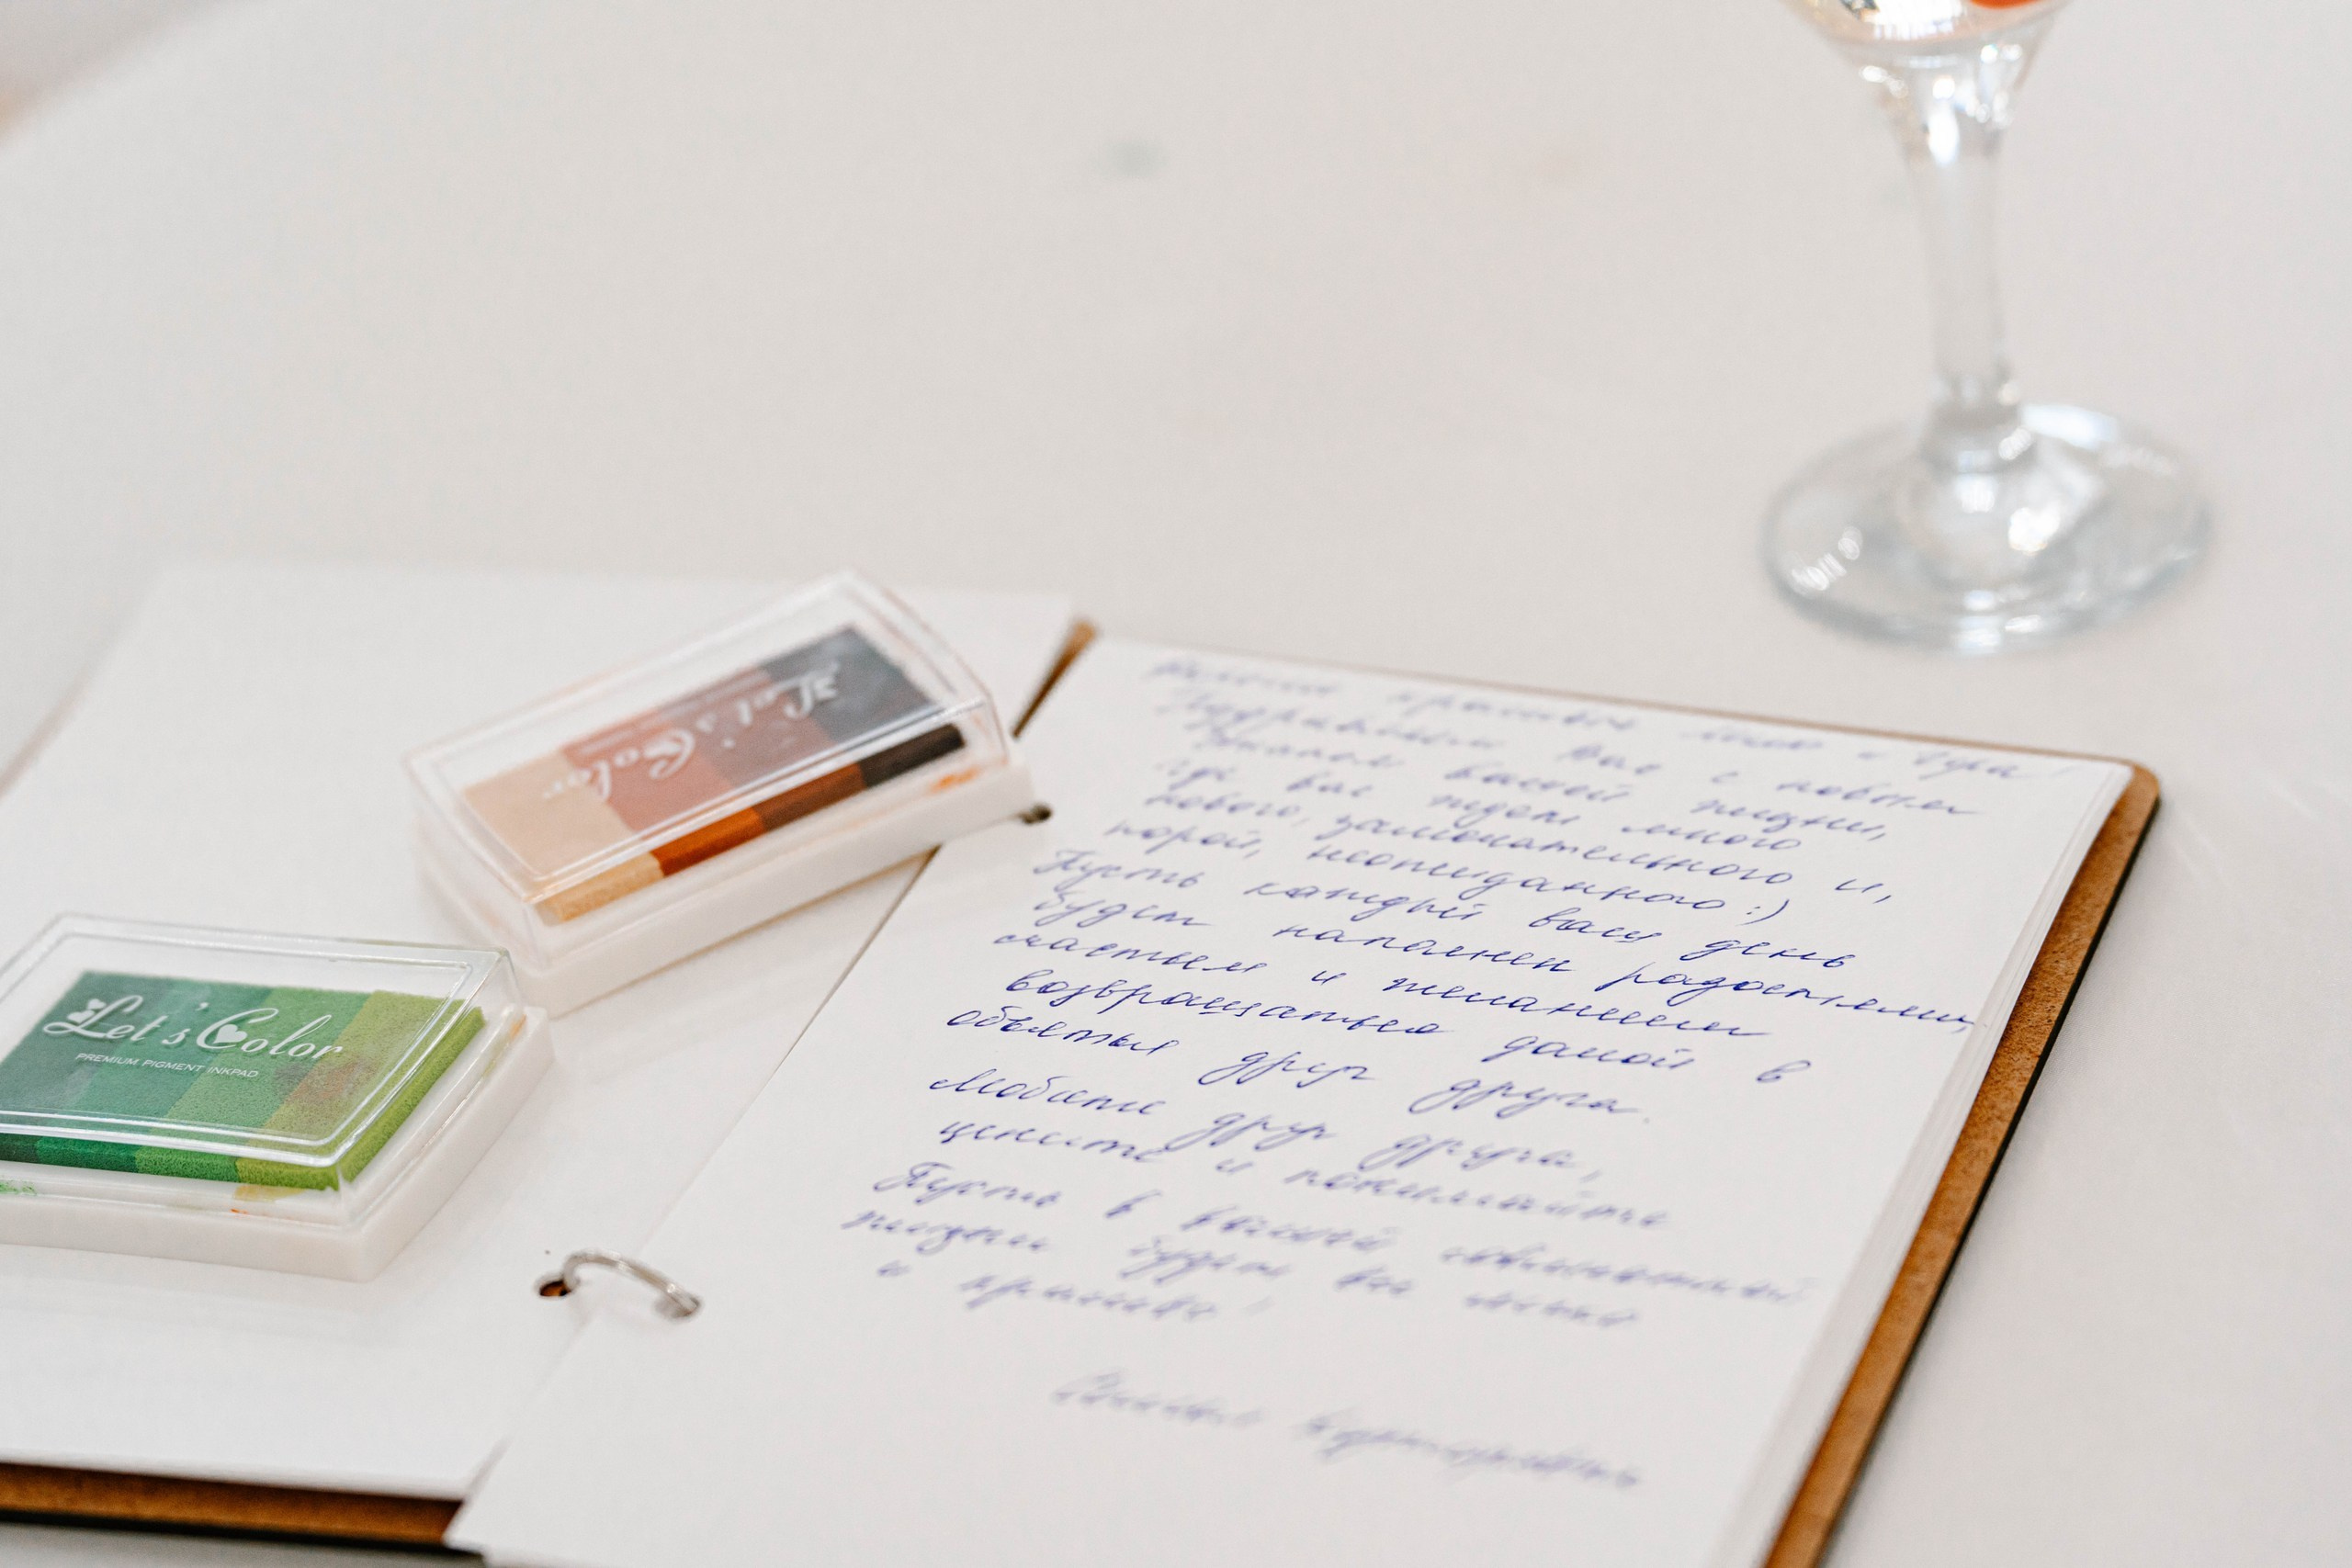 Let's Color
Let's Color
PREMIUM PIGMENT INKPAD
Поздравляем вас с новым
этапом вашей жизни,
где вас ждет много
нового, замечательного и,
порой, неожиданного :)
Пусть каждый ваш день
будет наполнен радостями,
счастьем и желанием
возвращаться домой в
объятья друг друга.
Любите друг друга,
цените и понимайте
Пусть в вашей
жизни будет все
и красиво!